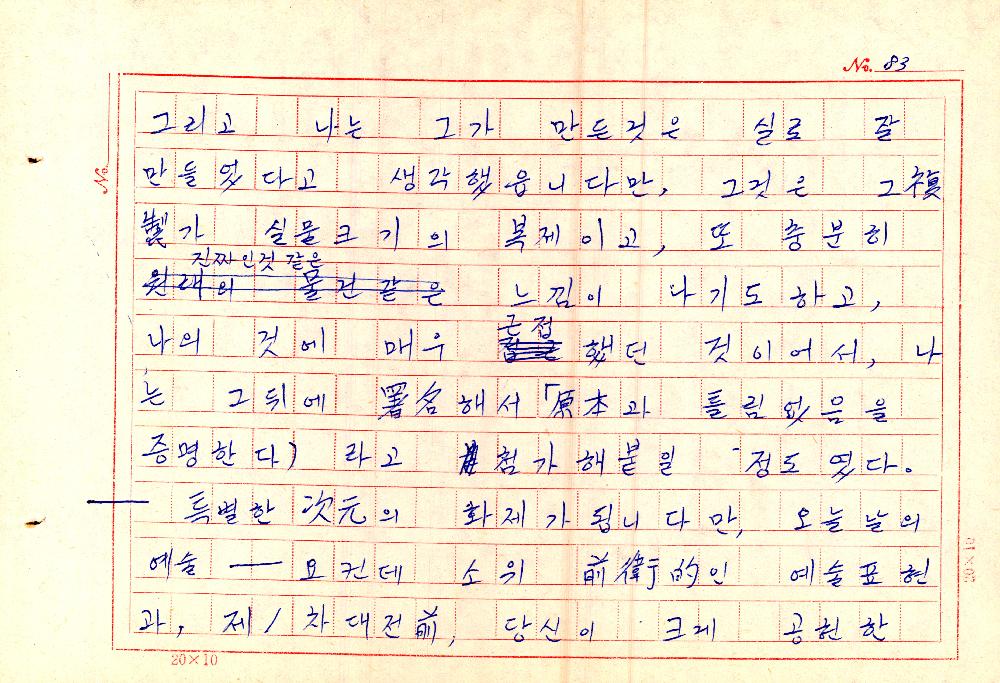 No. 83
No.
그리고 나는 그가 만든것은 실로 잘
만들었다고 생각했읍니다만, 그것은 그複
製가 실물크기의 복제이고, 또 충분히
진짜인것 같은
원래의 물건같은 느낌이 나기도하고,
근접
나의 것에 매우 했던 것이어서, 나
는 그뒤에 署名해서 「原本과 틀림없음을
증명한다) 라고 첨가해붙일 정도였다.
특별한 次元의 화제가됩니다만, 오늘날의
예술 — 요컨데 소위 前衛的인 예술표현
과, 제1차대전前, 당신이 크게 공헌한
20×10
20×10